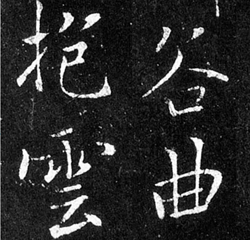 谷曲
抱雲